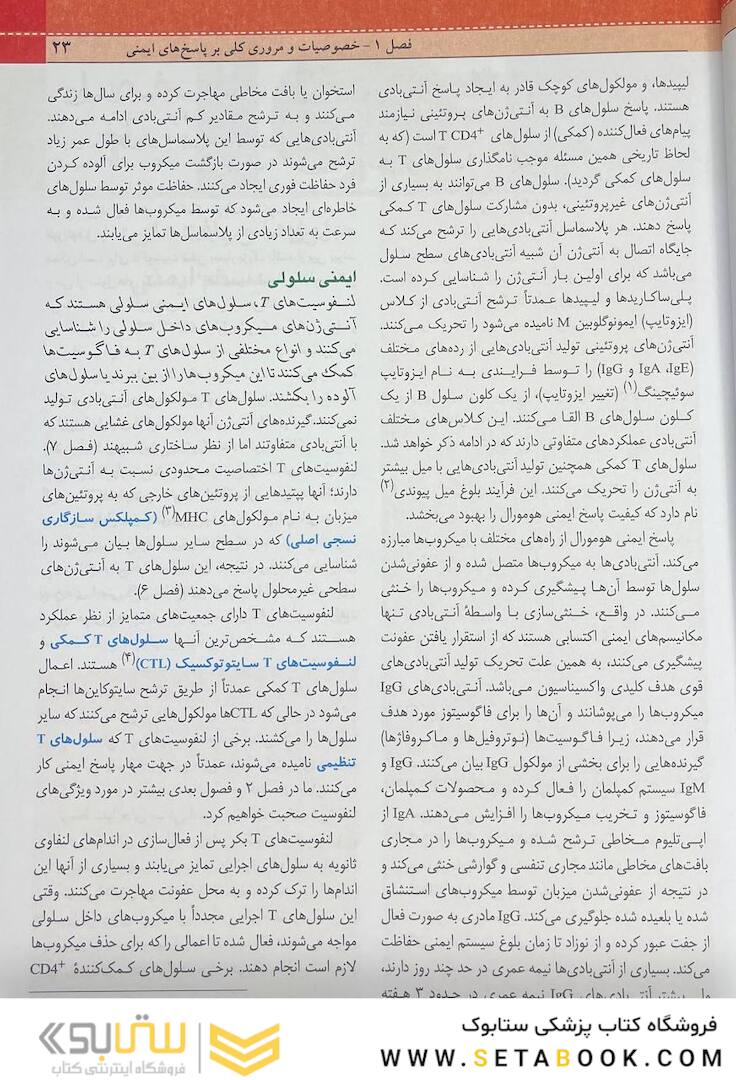 فصل ۱ – خصوصیات و مروری کلی بر پاسخ‌های ایمنی
۲۳
لیپیدها، و مولکول‌های کوچک قادر به ایجاد پاسخ آنتی‌بادی
هستند. پاسخ سلول‌های B به آنتی‌ژن‌های پروتئینی نیازمند
پیام‌های فعال‌کننده (کمکی) از سلول‌های T CD4⁺ است (که به
لحاظ تاریخی همین مسئله موجب نامگذاری سلول‌های T به
سلول‌های کمکی گردید). سلول‌های B می‌توانند به بسیاری از
آنتی‌ژن‌های غیرپروتئینی، بدون مشارکت سلول‌های T کمکی
پاسخ دهند. هر پلاسماسل آنتی‌بادی‌هایی را ترشح می‌کند که
جایگاه اتصال به آنتی‌ژن آن شبیه آنتی‌بادی‌های سطح سلول
می‌باشد که برای اولین بار آنتی‌ژن را شناسایی کرده است.
پلی‌ساکاریدها و لیپیدها عمدتاً ترشح آنتی‌بادی از کلاس
(ایزوتایپ) ایمونوگلوبین M نامیده می‌شود را تحریک می‌کنند.
آنتی‌ژن‌های پروتئینی تولید آنتی‌بادی‌هایی از رده‌های مختلف
(IgE، IgA و IgG) را توسط فرایندی به نام ایزوتایپ
سوئیچینگ(۱) (تغییر ایزوتایپ)، از یک کلون سلول B از یک
کلون سلول‌های B القا می‌کنند. این کلاس‌های مختلف
آنتی‌بادی عملکردهای متفاوتی دارند که در ادامه ذکر خواهد شد.
سلول‌های T کمکی همچنین تولید آنتی‌بادی‌هایی با میل بیشتر
به آنتی‌ژن را تحریک می‌کنند. این فرآیند بلوغ میل پیوندی(۲)
نام دارد که کیفیت پاسخ ایمنی هومورال را بهبود می‌بخشد.
پاسخ ایمنی هومورال از راه‌های مختلف با میکروب‌ها مبارزه
می‌کند. آنتی‌بادی‌ها به میکروب‌ها متصل شده و از عفونی‌شدن
سلول‌ها توسط آن‌ها پیشگیری کرده و میکروب‌ها را خنثی
می‌کنند. در واقع، خنثی‌سازی با واسطهٔ آنتی‌بادی تنها
مکانیسم‌های ایمنی اکتسابی هستند که از استقرار یافتن عفونت
پیشگیری می‌کنند، به همین علت تحریک تولید آنتی‌بادی‌های
قوی هدف کلیدی واکسیناسیون می‌باشد. آنتی‌بادی‌های IgG
میکروب‌ها را می‌پوشانند و آن‌ها را برای فاگوسیتوز مورد هدف
قرار می‌دهند، زیرا فاگوسیت‌ها (نوتروفیل‌ها و ماکروفاژها)
گیرنده‌هایی را برای بخشی از مولکول IgG بیان می‌کنند. IgG و
IgM سیستم کمپلمان را فعال کرده و محصولات کمپلمان،
فاگوسیتوز و تخریب میکروب‌ها را افزایش می‌دهند. IgA از
اپی‌تلیوم مخاطی ترشح شده و میکروب‌ها را در مجاری
بافت‌های مخاطی مانند مجاری تنفسی و گوارشی خنثی می‌کند و
در نتیجه از عفونی‌شدن میزبان توسط میکروب‌های استنشاق
شده یا بلعیده شده جلوگیری می‌کند. IgG مادری به صورت فعال
از جفت عبور کرده و از نوزاد تا زمان بلوغ سیستم ایمنی حفاظت
می‌کند. بسیاری از آنتی‌بادی‌ها نیمه عمری در حد چند روز دارند،
بیشتر آنتی‌بادی‌های IgG نیمه عمری در حدود ۳ هفته
استخوان یا بافت مخاطی مهاجرت کرده و برای سال‌ها زندگی
می‌کنند و به ترشح مقادیر کم آنتی‌بادی ادامه می‌دهند.
آنتی‌بادی‌هایی که توسط این پلاسماسل‌های با طول عمر زیاد
ترشح می‌شوند در صورت بازگشت میکروب برای آلوده کردن
فرد حفاظت فوری ایجاد می‌کنند. حفاظت موثر توسط سلول‌های
خاطره‌ای ایجاد می‌شود که توسط میکروب‌ها فعال شده و به
سرعت به تعداد زیادی از پلاسماسل‌ها تمایز می‌یابند.
ایمنی سلولی
لنفوسیت‌های T، سلول‌های ایمنی سلولی هستند که
آنتی‌ژن‌های میکروب‌های داخل سلولی را شناسایی
می‌کنند و انواع مختلفی از سلول‌های T به فاگوسیت‌ها
کمک می‌کنند تا این میکروب‌ها را از بین ببرند یا سلول‌های
آلوده را بکشند. سلول‌های T مولکول‌های آنتی‌بادی تولید
نمی‌کنند. گیرنده‌های آنتی‌ژن آنها مولکول‌های غشایی هستند که
با آنتی‌بادی متفاوتند اما از نظر ساختاری شبیهند (فصل ۷).
لنفوسیت‌های T اختصاصیت محدودی نسبت به آنتی‌ژن‌ها
دارند؛ آنها پپتیدهایی از پروتئین‌های خارجی که به پروتئین‌های
میزبان به نام مولکول‌های MHC(۳) (کمپلکس سازگاری
نسجی اصلی) که در سطح سایر سلول‌ها بیان می‌شوند را
شناسایی می‌کنند. در نتیجه، این سلول‌های T به آنتی‌ژن‌های
سطحی غیرمحلول پاسخ می‌دهند (فصل ۶).
لنفوسیت‌های T دارای جمعیت‌های متمایز از نظر عملکرد
هستند که مشخص‌ترین آنها سلول‌های T کمکی و
لنفوسیت‌های T سایتوتوکسیک (CTL)(۴) هستند. اعمال
سلول‌های T کمکی عمدتاً از طریق ترشح سایتوکاین‌ها انجام
می‌شود در حالی که CTLها مولکول‌هایی ترشح می‌کنند که سایر
سلول‌ها را می‌کشند. برخی از لنفوسیت‌های T که سلول‌های T
تنظیمی نامیده می‌شوند، عمدتاً در جهت مهار پاسخ ایمنی کار
می‌کنند. ما در فصل ۲ و فصول بعدی بیشتر در مورد ویژگی‌های
لنفوسیت صحبت خواهیم کرد.
لنفوسیت‌های T بکر پس از فعال‌سازی در اندام‌های لنفاوی
ثانویه به سلول‌های اجرایی تمایز می‌یابند و بسیاری از آنها این
اندام‌ها را ترک کرده و به محل عفونت مهاجرت می‌کنند. وقتی
این سلول‌های T اجرایی مجدداً با میکروب‌های داخل سلولی
مواجه می‌شوند، فعال شده تا اعمالی را که برای حذف میکروب‌ها
لازم است انجام دهند. برخی سلول‌های کمک‌کنندهٔ CD4⁺
فروشگاه کتاب پزشکی ستابوک
WWW.SETABOOK.COM
ستابوک
فروشگاه اینترنتی کتاب